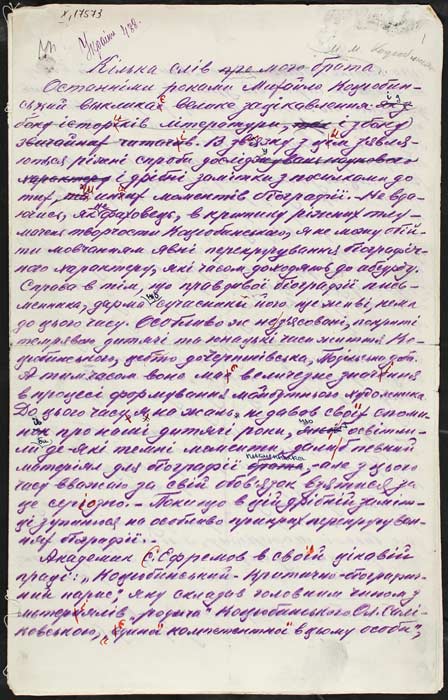 X, 17573
Україні 438.
М. М. Коцюбинськ
1
Кілька слів про мого брата
Останніми роками Михайло Коцюбин-
ський викликає велике зацікавлення з
боку істориків літератури, і з боку
звичайних читачів. В звязку з цим зявля-
ються ріжні спроби дослід
характеру і дрібні замітки з посилками до
тих, чи инших моментів біографії. Не вда-
ючися, як не фаховець, в критику ріжних тлу-
мачень творчости Коцюбинського, я не можу обій-
ти мовчанням явні перекручування біографіч-
ного характеру, які часом доходять до абсурду.
Справа в тім, що правдивої біографії пись-
менника, дарма що сучасники його ще живі, нема
до цього часу. Особливо не освітовані, покриті
темрявою дитячі та юнацькі часи життя Ко-
цюбинського, цебто дочернігівська, Подільська доба.
А тим часом вона має величезне значіння
в процесі формування майбутнього художника.
До цього часу я, на жаль, не давав своїх спомин-
ів про наші дитячі роки, що освітили
би деякі темні моменти, дали б певний
матеріял для біографії письменника, але з цього
часу вважаю за свій обовязок взятися за
це сугідно. - Поки що в цій дрібній заміт-
ці зупинюся на особливо прикрих перекручуван-
нях біографії.
Академик С. Ефремов в своїй цікавій
праці: „Коцюбинський - Критично-біографіч-
ний нарис", яку складав головним чином з
матеріялів „родича" Коцюбинського Ол. Салі-
ковського, „єдиної компетентної в цьому особи",